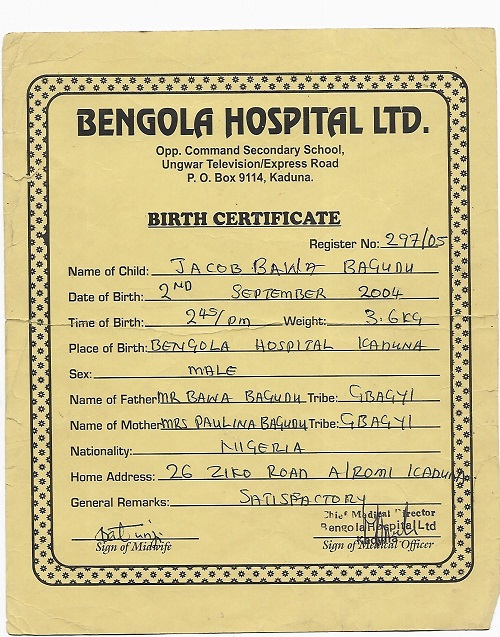 BENGOLA HOSPITAL LTD.
Opp. Command Secondary School,
Ungwar Television/Express Road
P. O. Box 9114, Kaduna.
BIRTH CERTIFICATE
Register No: 297/05
Name of Child: JACOB BAWA BAGUDU
Date of Birth: 2ND SEPTEMBER 2004
Time of Birth: 245/pm Weight: 3.6KG
Place of Birth: BENGOLA HOSPITAL KADUNA
Sex: MALE
Name of Father MR BAWA BAGUDU Tribe: GBAGYI
Name of Mother MRS PAULINA BAGUDU Tribe: GBAGYI
Nationality: NIGERIA
Home Address: 26 ZIKO ROAD A/ROMI KADUNA.
General Remarks: SATISFACTORY
Chief Medical Director
Bengola Hospital Ltd
Kaduna
Sign of Midwife Sign of Medical Officer